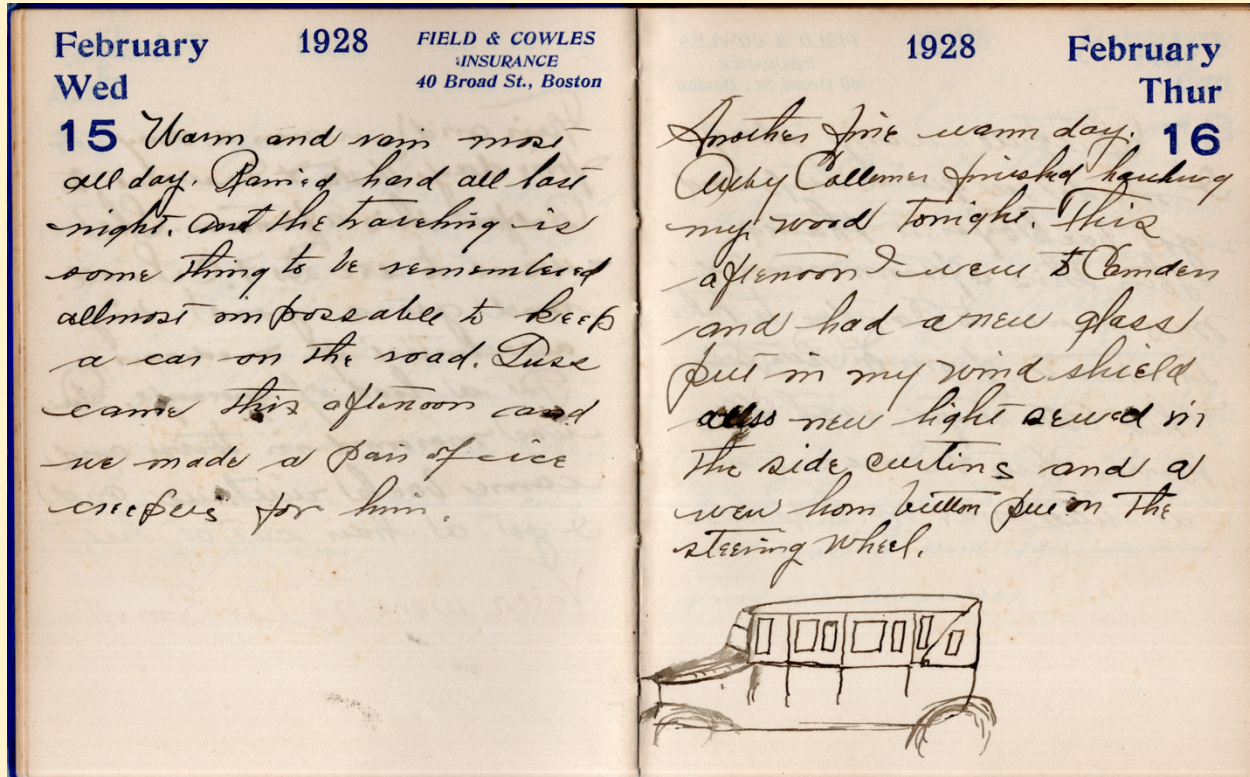 February 1928 FIELD & COWLES
INSURANCE
Wed 40 Broad St., Boston
15 Warm and rain most
all day. Rained hard all last
night. and the traveling is
some thing to be remembered
allmost impossable to keep
a car on the road. Puss
came this afternoon and
we made a pair of ice
creepers for him.
1928 February
Thur
Another fine warm day. 16
finished hauling
my wood tonight. This
afternoon I went to Camden
and had a new glass
put in my wind shield
allso new light sewed in
the side curtins and a
new horn button put on the
steering wheel.